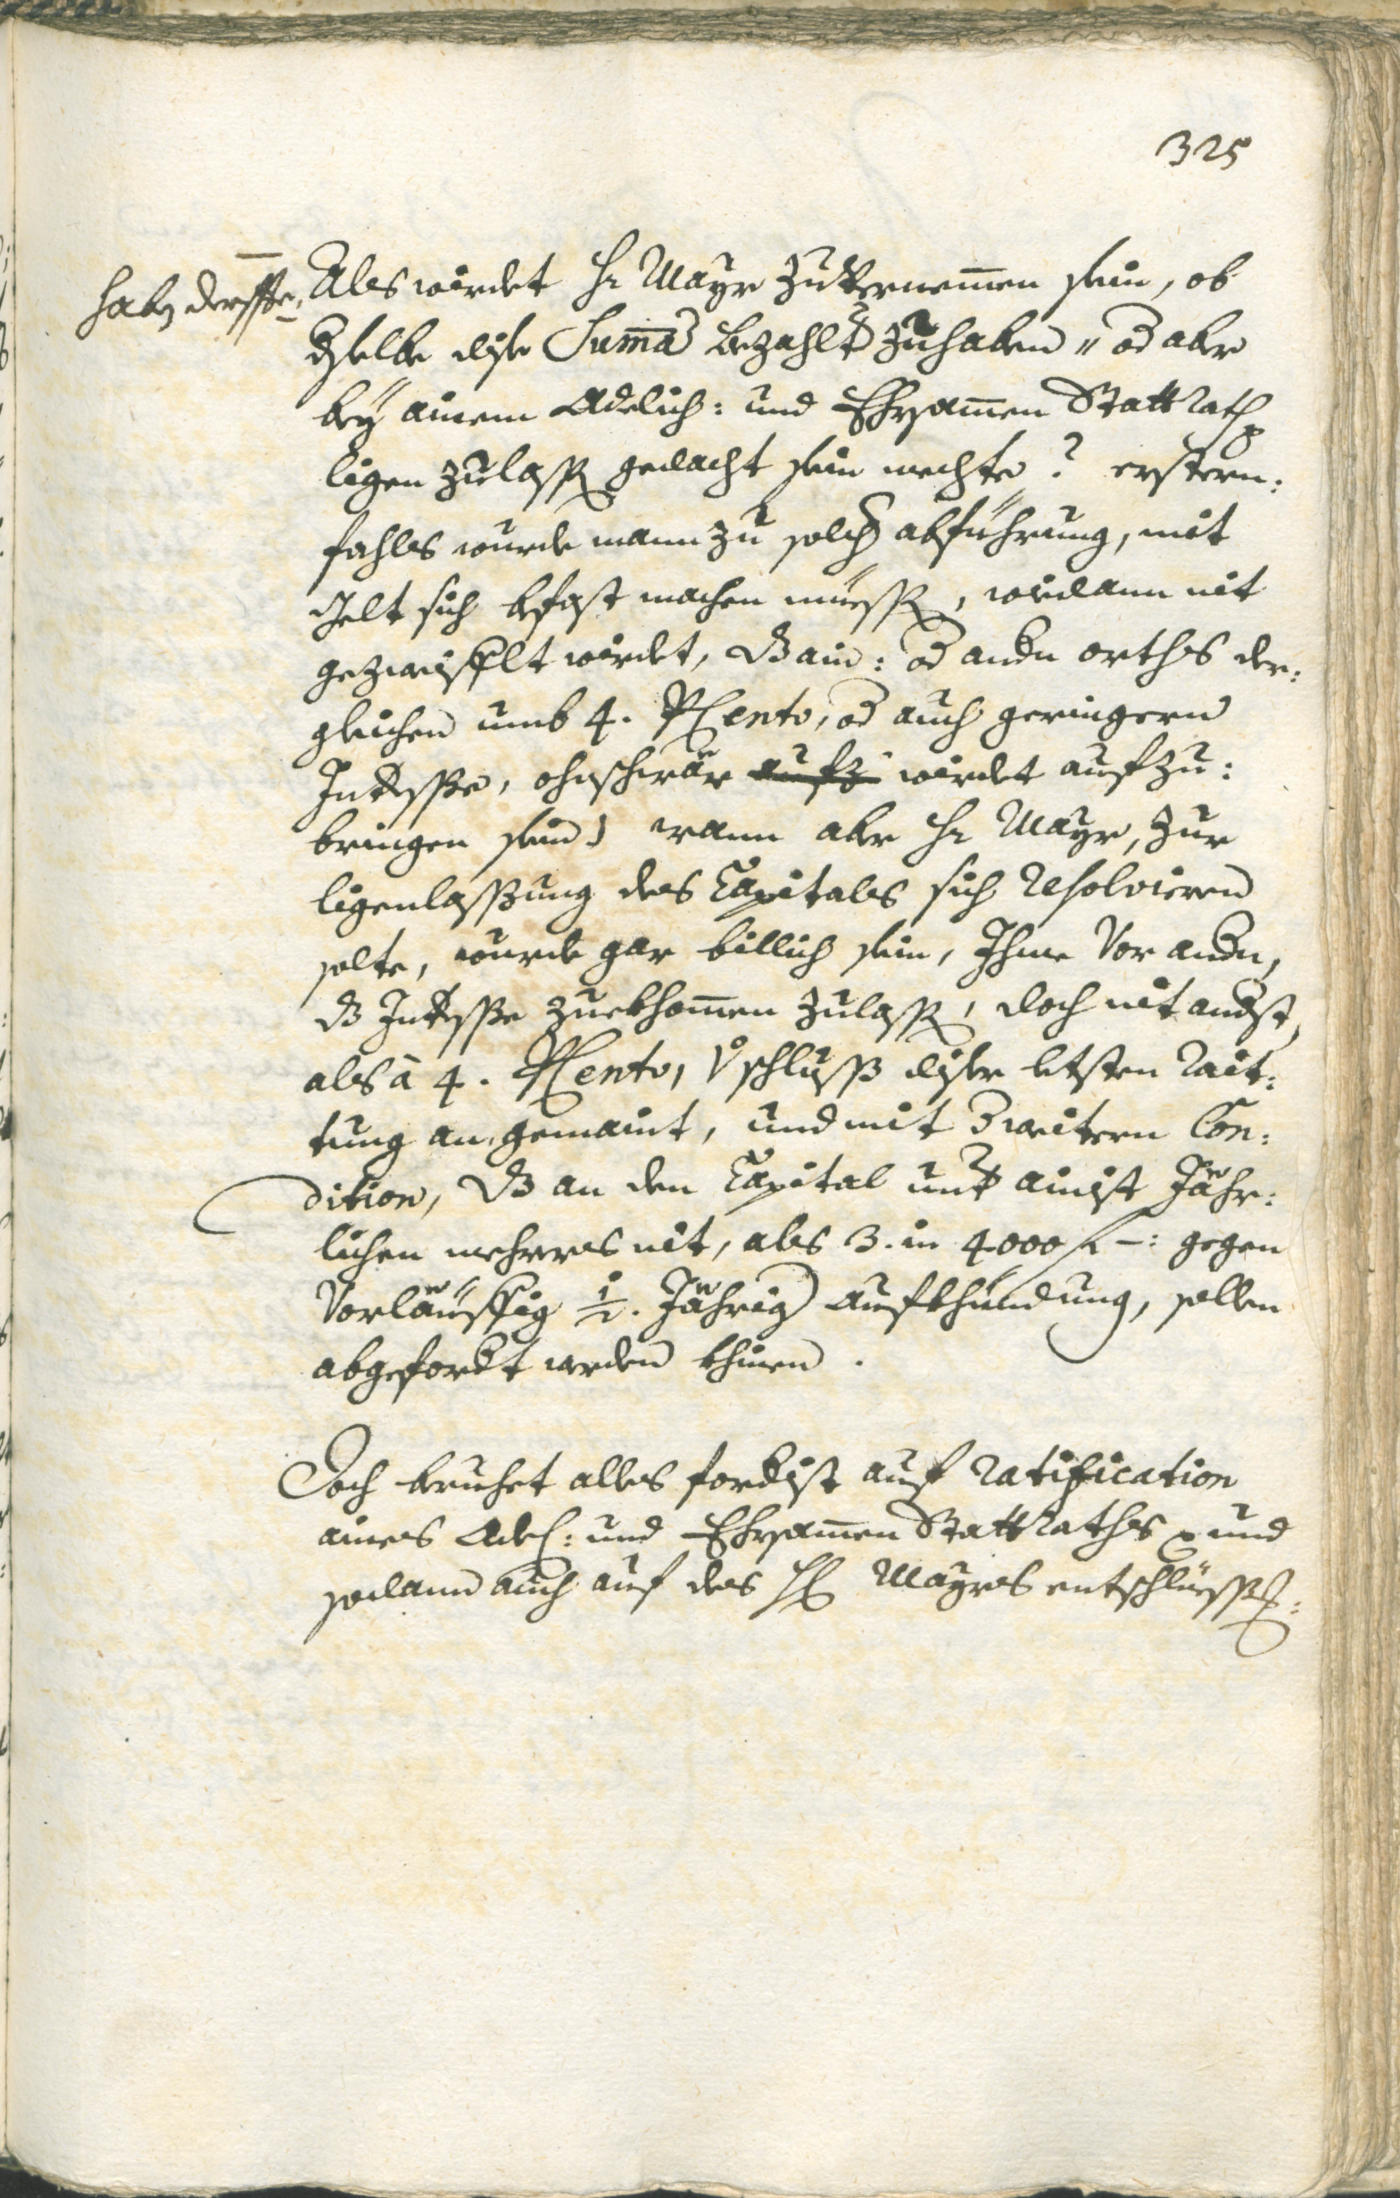 325
haben derffte,
Als wirdet Hr Mayr zuvernemmen sein, ob
dselbe dise Summa bezahlt zuhaben, od aber
bey ainem Adelich: und Ehrsammen Statt Rath
ligen zulassen gedacht sein mechte? erstern:
fahls wurde mann zu solch abführung, mit
Gelt sich gefast machen müessen, wie dann nit
gezweifflt wirdet, dz ain: od andn orths der:
gleichen umb 4. PCento, od auch geringern
Interesse, ohnschwär aufz wirdet aufzu:
bringen sein) wann aber Hr Mayr, zur
ligenlassung des Capitals sich resolvieren
solte, wurde gar billich sein, Ihme vor andn,
dz Interesse zuekhommen zulassen, doch nit andst,
als à 4. PCento, schluss diser letsten Rait:
tung an, gemaint, und mit weitern Con:
dition, dz an den Capital unter ainist Jähr:
lichen mehrers nit, als 3. in 4000 fl –: gegen
Vorläuffig ½. Jährig aufkhündung, sollen
abgefordt werden khinen.
Doch beruhet alles fordist auf ratification
aines Adel: und Ehrsammen Statt Raths und
sodann auch auf des H: Mayrs entschlüessen: